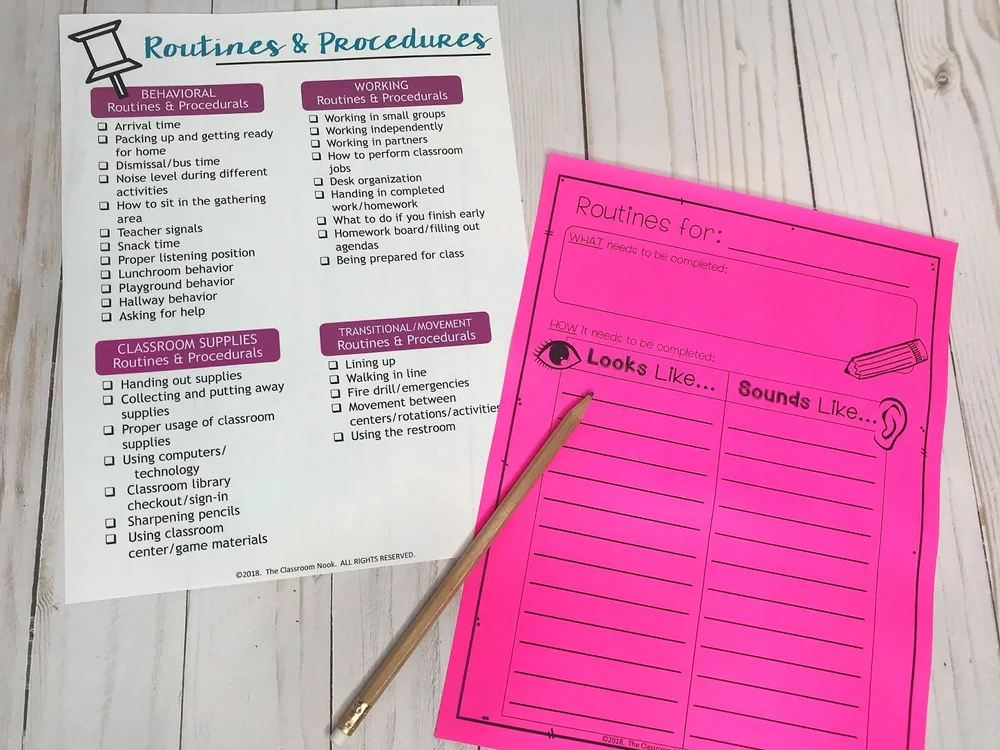 Routines & Procedures
BEHAVIORAL
Routines & Procedurals
Arrival time
Packing up and getting ready
for home
Dismissal/bus time
Noise level during different
activities
How to sit in the gathering
area
Teacher signals
Snack time
Proper listening position
Lunchroom behavior
Playground behavior
Hallway behavior
Asking for help
WORKING
Routines & Procedurals
Working in small groups
Working independently
Working in partners
How to perform classroom
jobs
Desk organization
Handing in completed
work/homework
What to do if you finish early
Homework board/filling out
agendas
Being prepared for class
CLASSROOM SUPPLIES
Routines & Procedurals
Handing out supplies
Collecting and putting away
supplies
Proper usage of classroom
supplies
Using computers/
technology
Classroom library
checkout/sign-in
Sharpening pencils
Using classroom
center/game materials
TRANSITIONAL/MOVEMENT
Routines & Procedurals
Lining up
Walking in line
Fire drill/emergencies
Movement between
centers/rotations/activities
Using the restroom
©2018. The Classroom Nook. ALL RIGHTS RESERVED.
Routines for:
WHAT needs to be completed:
HOW it needs to be completed:
Looks Like...
Sounds Like...
©2018. The Classroom